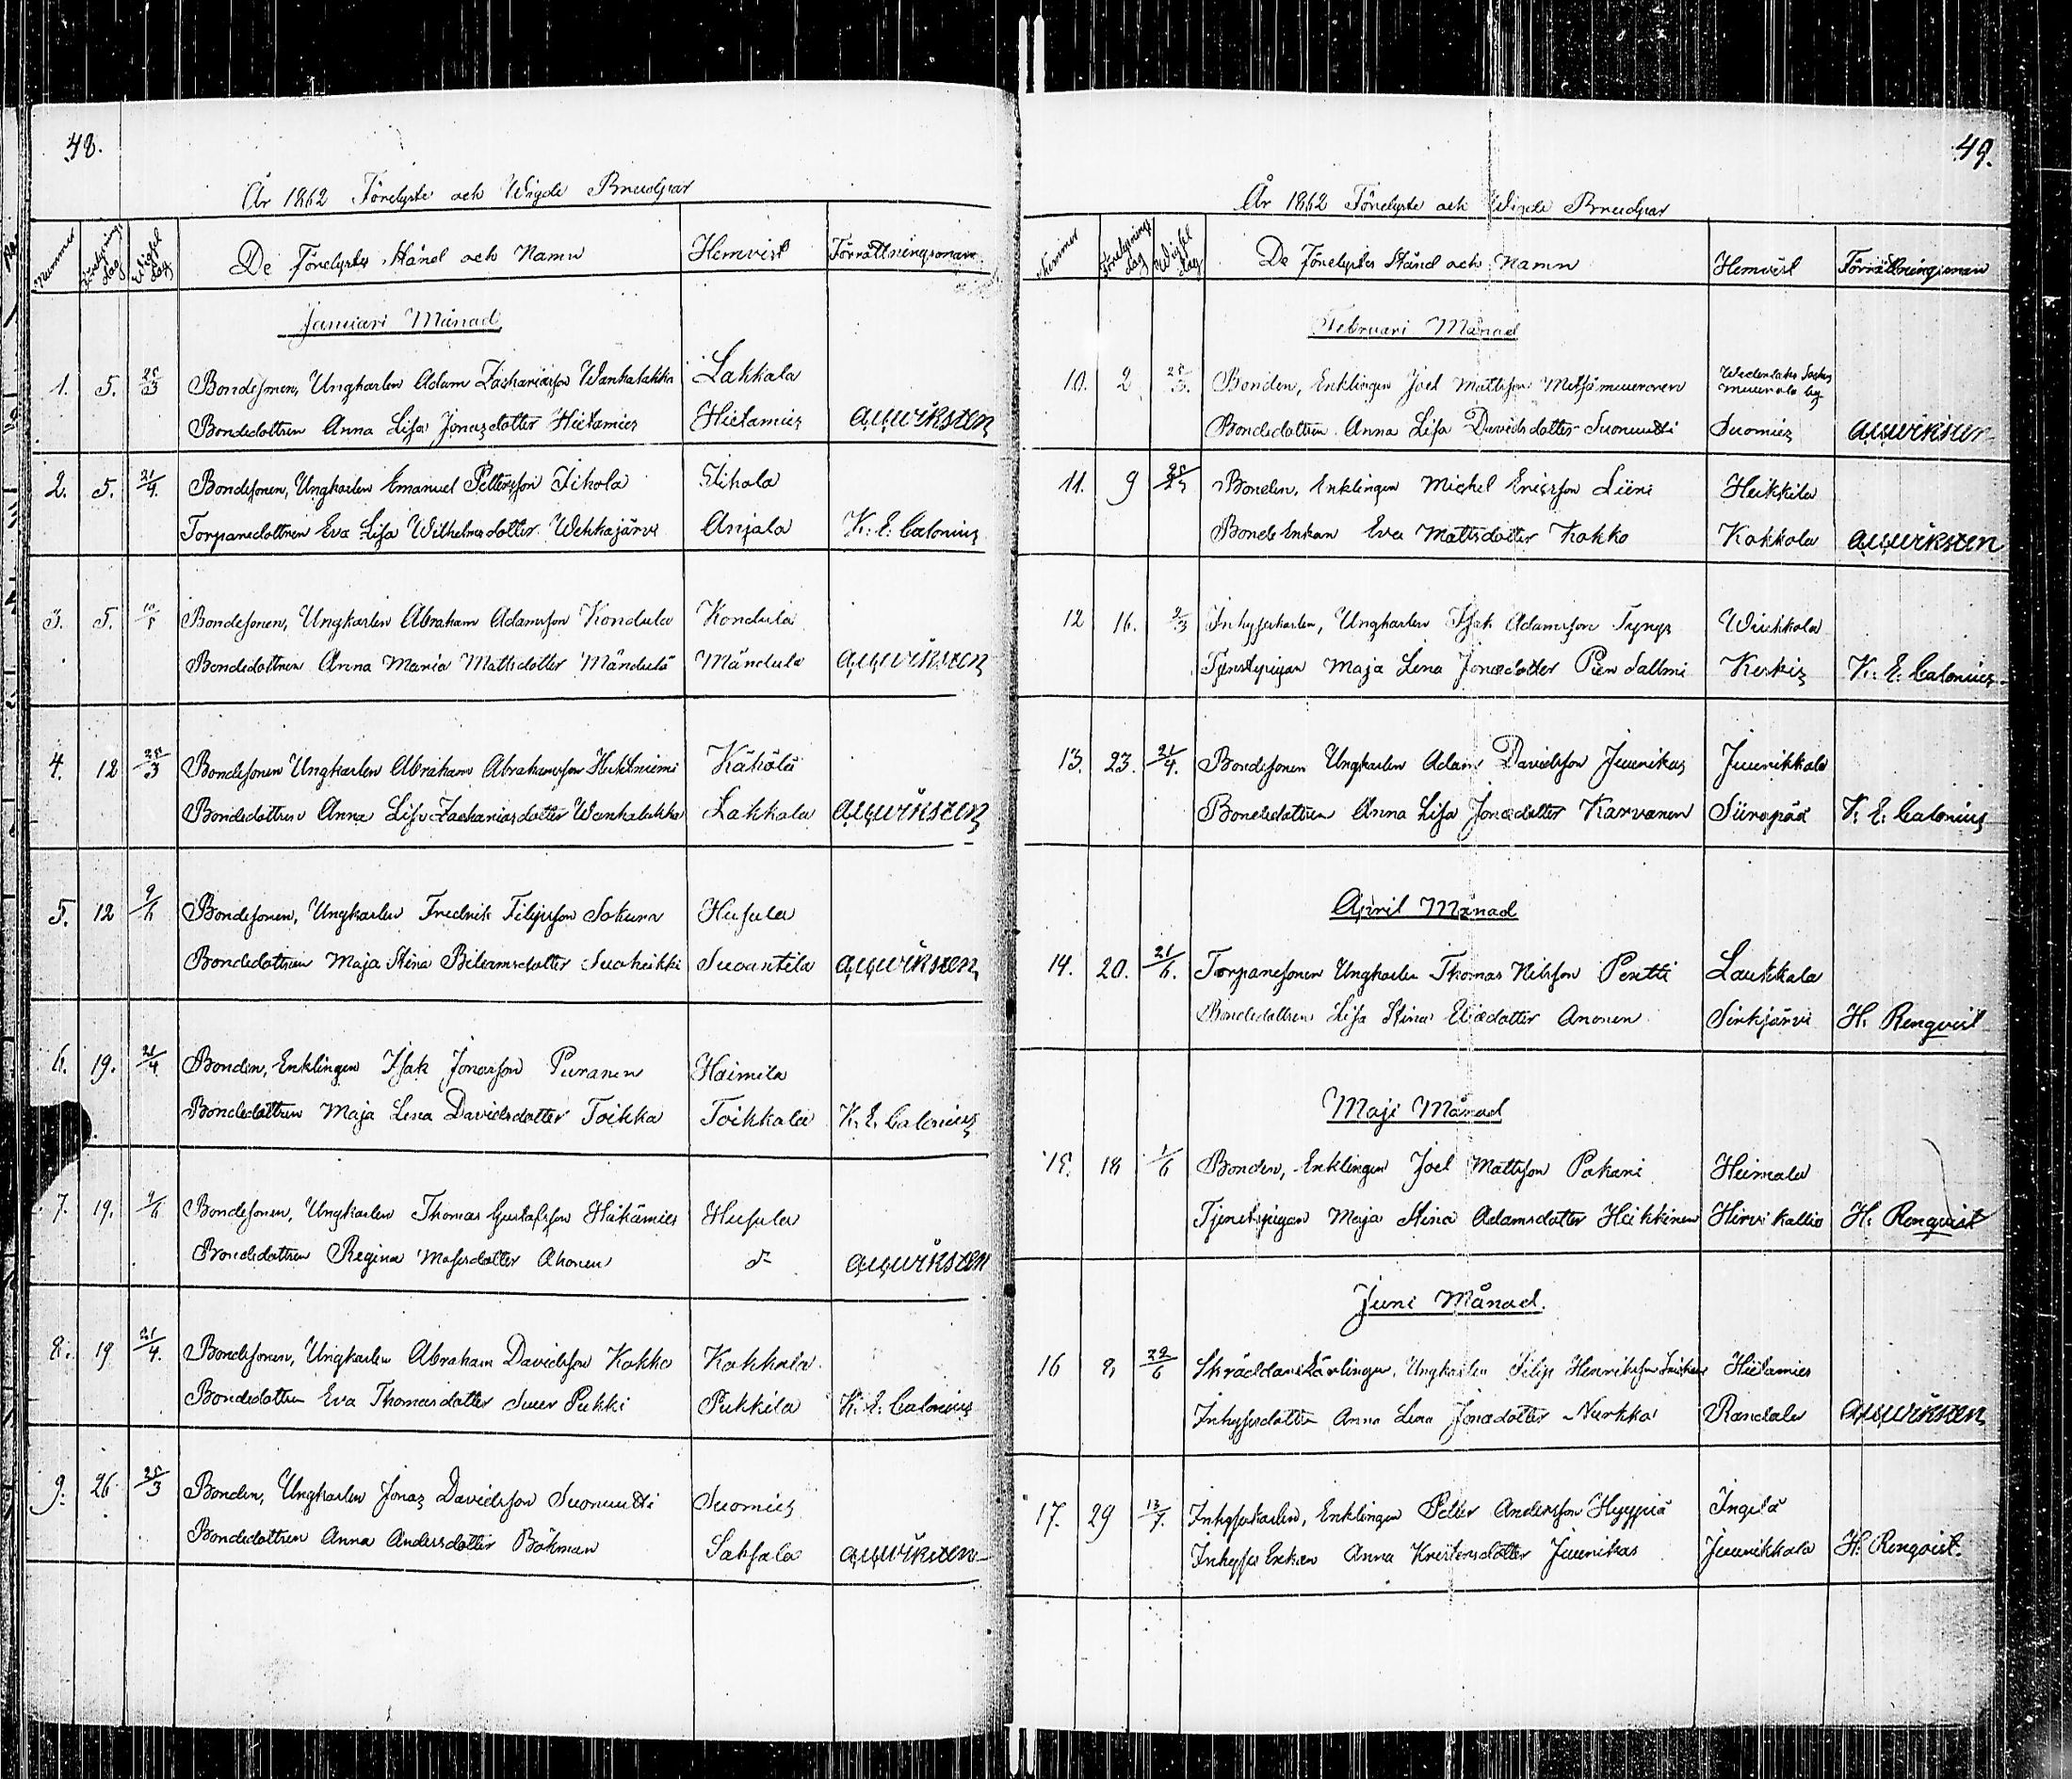 48.
År 1862 Förelyste och Wigde Brudpar
Nummer Förelysnings dag Wigsel dag De Förelystes Stånd och Namn Hemvist Förrättningsman
Januari Månad
1. 5. 25/3 Bondesonen, Ungkarlen Adam Zachariasson Wanhalakka Lakkala
Bondedottren Anna Lisa Jonasdotter Hietamies Hietamies
2. 5. 21/4 Bondesonen, Ungkarlen Emanuel Pettersson Tikola Tikola
Torparedottren Eva Lisa Wilhelmsdotter Wehkajärvi Anjala K. E. Calonius
3. 5. Bondesonen, Ungkarlen Abraham Adamsson Kondula Kondula
Bondedottren Anna Maria Mattsdotter Mändulä Mändulä
4. 12 25/3 Bondesonen Ungkarlen Abraham Abrahamsson Kähölä
Bondedottren Anna Lisa Zachariasdotter Wanhalakka Lakkala
5. 12 9/6 Bondesonen, Ungkarlen Fredrik Filipsson Sokura Husula
Bondedottren Maja Stina Bileamsdotter Suoheikki Suoantila
6. 19. 21/4 Bonden, Enklingen Isak Jonasson Puranen Haimila
Bondedottren Maja Lena Davidsdotter Toikka Toikkala K. E. Calonius
7. 19. 9/6 Bondesonen, Ungkarlen Thomas Gustafsson Häkämies Husula
Bondedottren Regina Mosesdotter Ahonen d:o
8. 19 21/4. Bondesonen, Ungkarlen Abraham Davidsson Kokko Kokkola
Bondedottren Eva Thomasdotter Suur Pukki Pukkila K. E. Calonius
9. 26 25/3 Bonden, Ungkarlen Jonas Davidsson Suomutti Suomies
Bondedottren Anna Andersdotter Bökman Saksala
49.
År 1862 Förelyste och Wigde Brudpar
Nummer Förelysnings dag Wigsel dag De Förelystes Stånd och Namn Hemvist Förrättningsman
Februari Månad
10. 2 25/3. Bonden, Enklingen Joel Mattsson Metsämuuronen Wederlaks Socken
Muurola by
Bondedottren Anna Lisa Davidsdotter Suomutti Suomies
11. 9 25/3 Bonden, Enklingen Michel Ericsson Liiri Heikkilä
Bonde Enkan Eva Mattsdotter Kokko Kokkola
12 16. 9/3 Inhyseskarlen, Ungkarlen Isak Adamsson Tynys
Tjenstepigan Maja Lena Jonasdotter Pien Sallmi Kerkis K. E. Calonius
13. 23. 21/4. Bondesonen Ungkarlen Adam Davidsson Juunikas Juunikkala
Bondedottren Anna Lisa Jonasdotter Karvanen Siiropää K. E. Calonius
April Månad
14. 20. 21/6. Torparesonen Ungkarlen Thomas Nilsson Pentti Laukkala
Bondedottren Lisa Stina Eliædotter Anonen Sirkjärvi H. Renqvist
Maji Månad
15. 18 1/6 Bonden, Enklingen Joel Mattsson Pakani Heimala
Tjenstepigan Maja Stina Adamsdotter Heikkinen Hirvikallio H. Renqvist
Juni Månad.
16 8 22/6 Skräddarelärlingen, Ungkarlen Filip Henriksson Hietamies
Inhysesdottren Anna Lena Jonædotter Nurkka Randala
17. 29 13/7. Inhyseskarlen, Enklingen Petter Andersson Hyyppiä Ingilä
Inhyses Enkan Anna Kristersdotter Juunikas Juunikkala H. Renqvist.